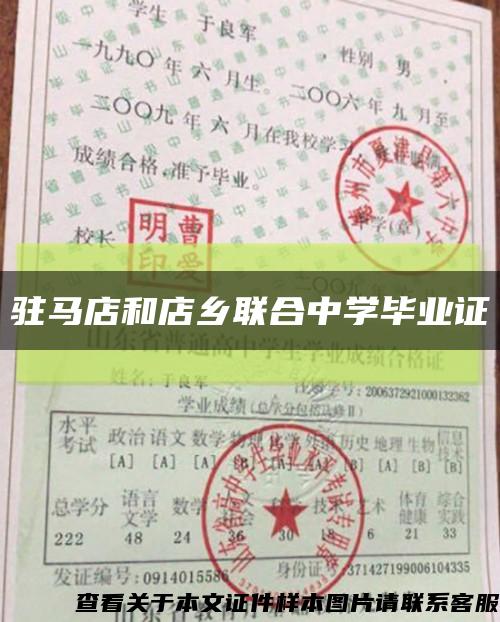 学生 于良军 ，性别 男
一九九〇 年 六 月生。二〇〇六 年 九 月至
二〇〇九 年 六 月在我校学习
成绩合格,准予毕业。
德州市夏津县第六中学
校长
曹爱明印
中学(章)
二〇〇九
驻马店和店乡联合中学毕业证
山东省普通高中学生学业成绩合格证
姓名:于良军
学号:2006372921000132362
学业成绩(总学分包括必修Ⅱ)
水平考试 政治 语文 数学 物理 化学 外语 历史 地理 生物 信息技术
[A] [A] [A] [B] [B] [A] [A] [B]
总学分 语言文学 数学 技术 艺术 体育健康 综合实践
222 48 24 36 30 18 6 21 33
发证编号:0914015586 身份证号:371427199006104335
查看关于本文证件样本图片请联系客服